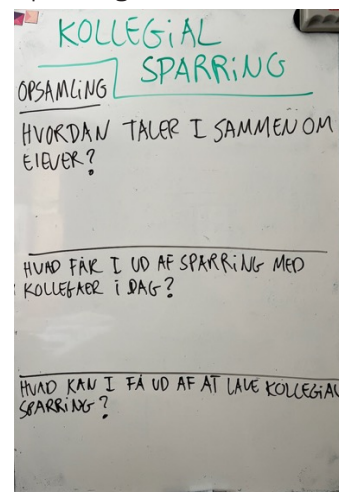 KOLLEGIAL
SPARRING
OPSAMLING
HVORDAN TALER I SAMMEN OM
ELEVER?
HVAD FÅR I UD AF SPARRING MED
KOLLEGAER I DAG?
HVAD KAN I FÅ UD AF AT LAVE KOLLEGIAL
SPARRING?